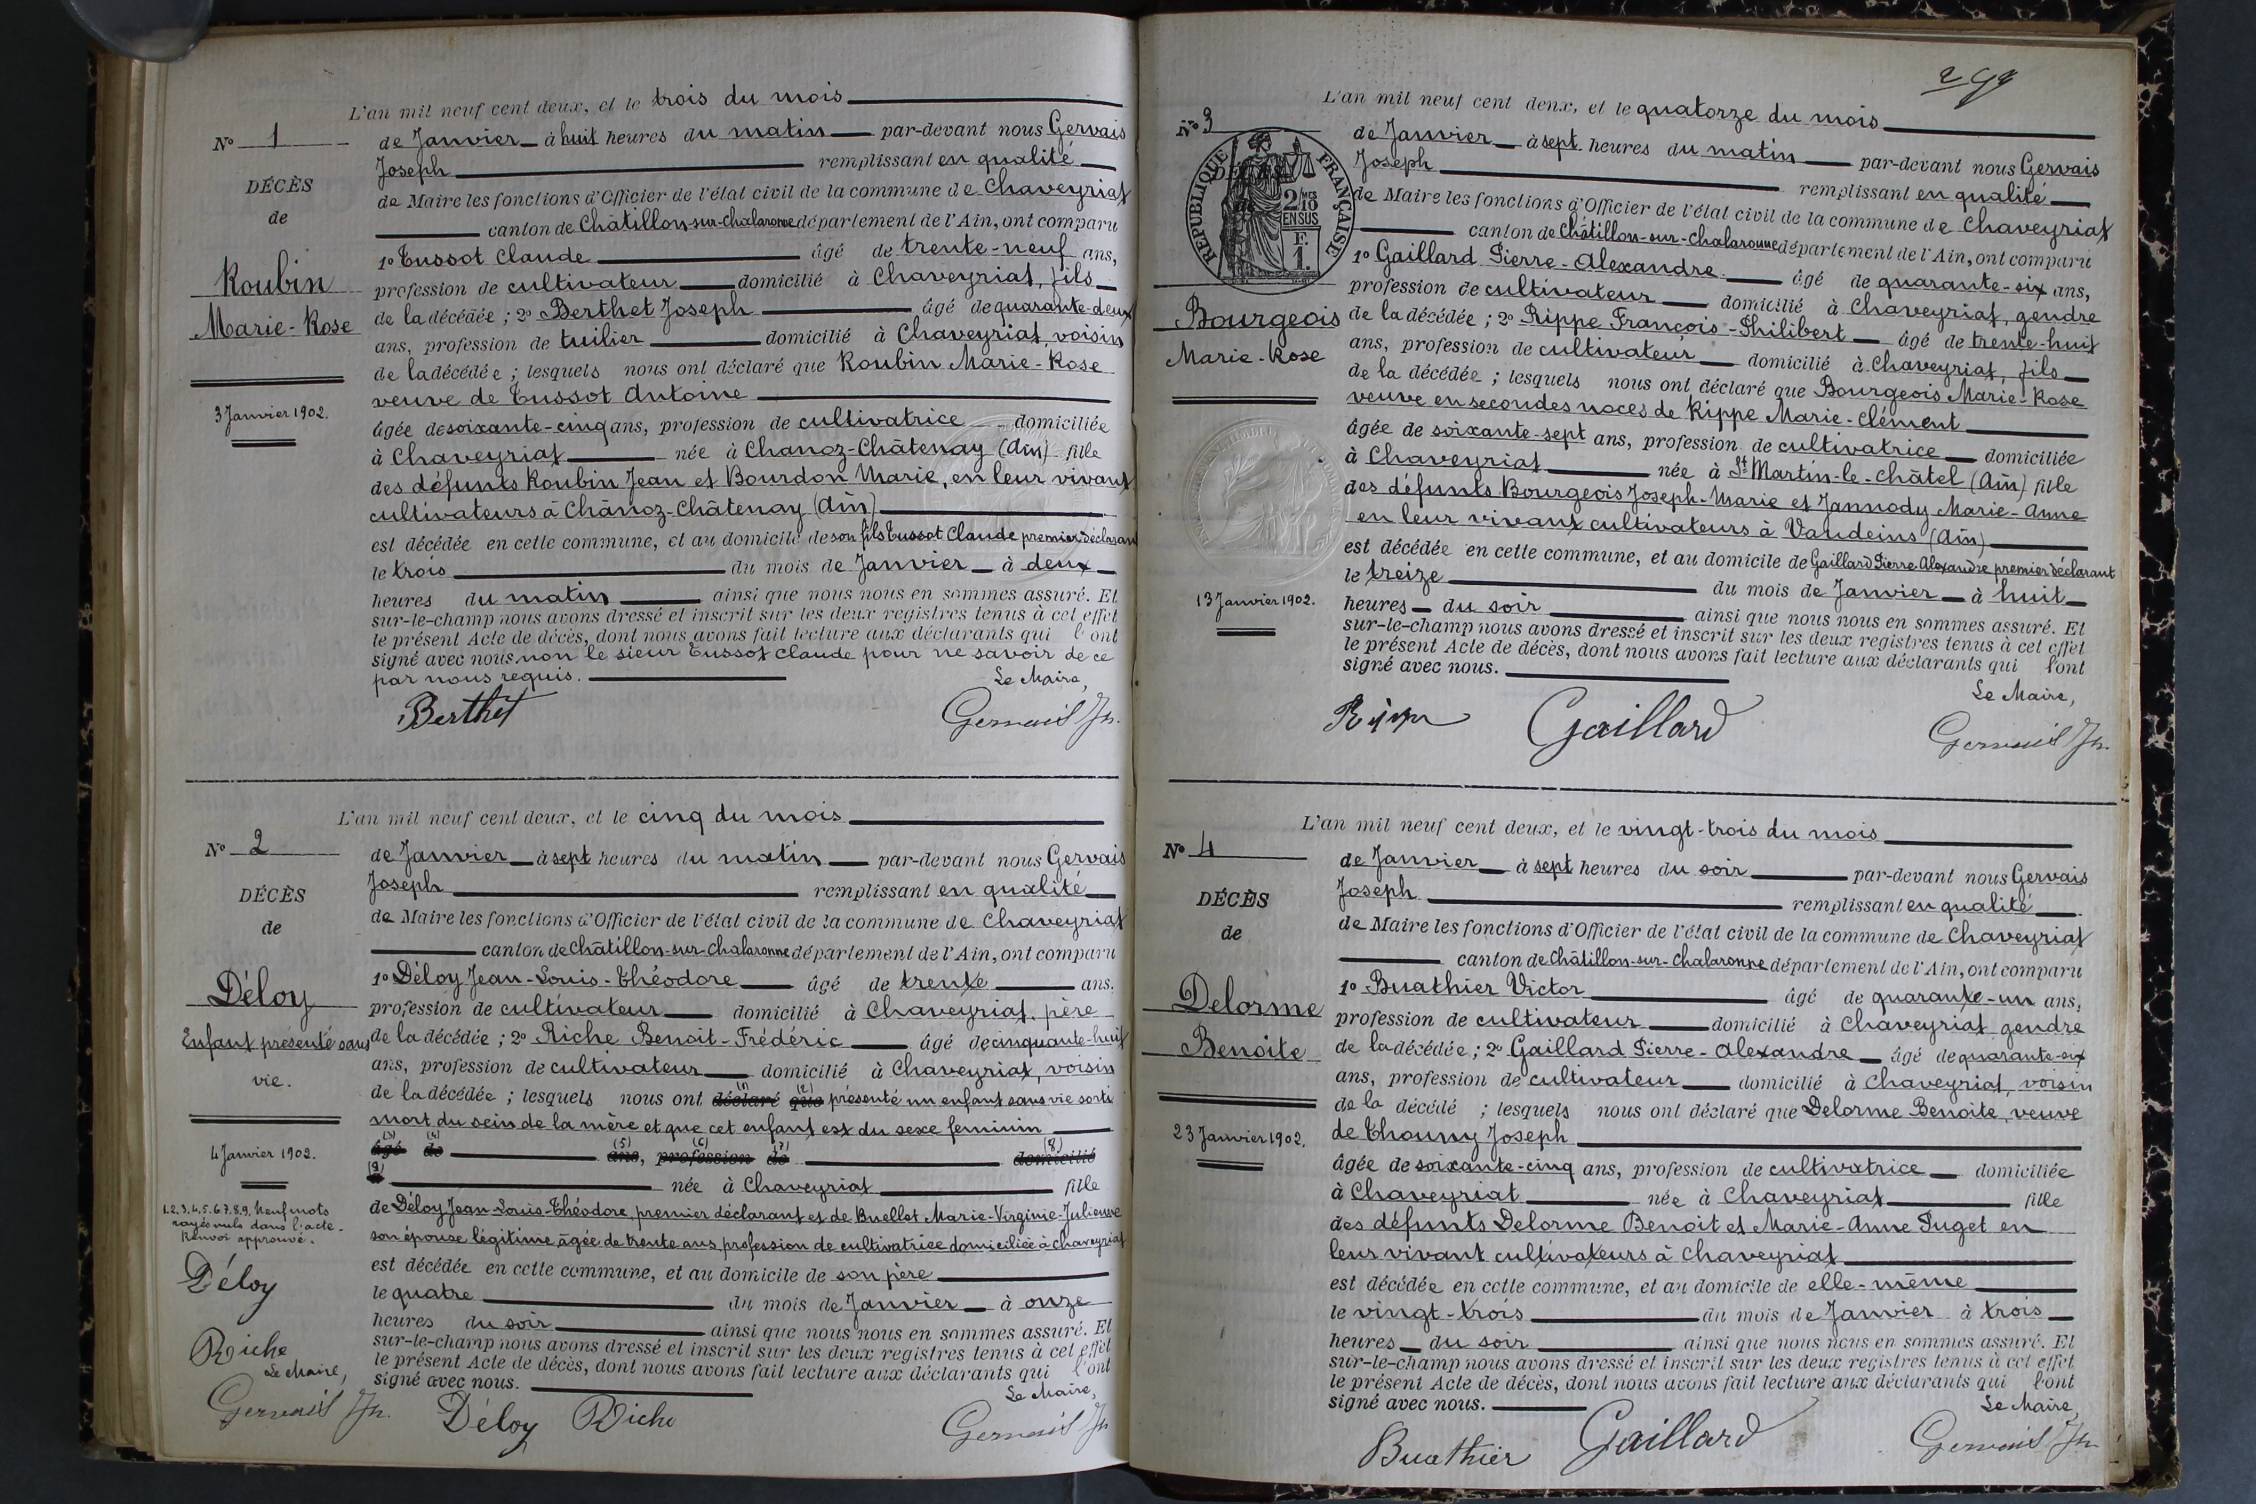 L'an mil neuf cent deux, et le trois du mois
N° 1
de Janvier à huit heures du matin par-devant nous Gervais
Joseph remplissant en qualité
DÉCÈS
de Maire les fonctions d'Officier de l'état civil de la commune de Chaveyriat
de
canton de Châtillon-sur-Chalaronne département de l'Ain, ont comparu
1° Tussot Claude âgé de trente-neuf ans,
Roubin
profession de cultivateur domicilié à Chaveyriat, fils
Marie-Rose
de la décédée ; 2° Berthet Joseph âgé de quarante-deux
ans, profession de tuilier domicilié à Chaveyriat, voisin
de la décédée ; lesquels nous ont déclaré que Roubin Marie-Rose
3 Janvier 1902.
veuve de Tussot Antoine
âgée de soixante-cinq ans, profession de cultivatrice domiciliée
à Chaveyriat née à Chanoz-Châtenay (Ain) fille
des défunts Roubin Jean et Bourdon Marie, en leur vivant
cultivateurs à Chânoz-Châtenay (Ain)
est décédée en cette commune, et au domicile de son fils Tussot Claude premier déclarant
le trois du mois de Janvier à deux
heures du matin ainsi que nous nous en sommes assuré. Et
sur-le-champ nous avons dressé et inscrit sur les deux registres tenus à cet effet
le présent Acte de décès, dont nous avons fait lecture aux déclarants qui l'ont
signé avec nous. non le sieur Tussot Claude pour ne savoir de ce
par nous requis.
Le Maire,
Berthet Gervais Jh.
L'an mil neuf cent deux, et le cinq du mois
N° 2
de Janvier à sept heures du matin par-devant nous Gervais
Joseph remplissant en qualité
DÉCÈS
de Maire les fonctions d'Officier de l'état civil de la commune de Chaveyriat
de
canton de Châtillon-sur-Chalaronne département de l'Ain, ont comparu
1° Déloy Jean-Louis-Théodore âgé de trente ans.
Déloy
profession de cultivateur domicilié à Chaveyriat, père
Enfant présenté sans
de la décédée ; 2° Riche Benoit-Frédéric âgé de cinquante-huit
vie.
ans, profession de cultivateur domicilié à Chaveyriat, voisin
de la décédée ; lesquels nous ont (1) déclaré (2) que présenté un enfant sans vie sorti
mort du sein de la mère et que cet enfant est du sexe feminin
4 Janvier 1902.
(3) âgé (4) de (5) ans, (6) profession (7) de (8) domicilié
(9) à née à Chaveyriat fille
1.2.3.4.5.6.7.8.9. Neuf mots
rayés nuls dans l'acte.
Renvoi approuvé.
de Déloy Jean-Louis-Théodore, premier déclarant et de Buellet Marie-Virginie-Julienne
son épouse légitime, âgée de trente ans, profession de cultivatrice domiciliée à Chaveyriat
est décédée en cette commune, et au domicile de son père
le quatre du mois de Janvier à onze
heures du soir ainsi que nous nous en sommes assuré. Et
sur-le-champ nous avons dressé et inscrit sur les deux registres tenus à cet effet
le présent Acte de décès, dont nous avons fait lecture aux déclarants qui l'ont
signé avec nous.
Le Maire,
Déloy
Riche
Le Maire,
Gervais Jh.
Déloy Riche Gervais Jh
299
L'an mil neuf cent deux, et le quatorze du mois
N° 3
de Janvier à sept heures du matin par-devant nous Gervais
Joseph remplissant en qualité
RÉPUBLIQUE FRANÇAISE
DÉCÈS
de
2/10 MES
EN SUS
F.
1.
de Maire les fonctions d'Officier de l'état civil de la commune de Chaveyriat
canton de Châtillon-sur-Chalaronne département de l'Ain, ont comparu
1° Gaillard Pierre-Alexandre âgé de quarante-six ans,
profession de cultivateur domicilié à Chaveyriat, gendre
Bourgeois
Marie-Rose
de la décédée ; 2° Rippe François-Philibert âgé de trente-huit
ans, profession de cultivateur domicilié à Chaveyriat, fils
de la décédée ; lesquels nous ont déclaré que Bourgeois Marie-Rose
veuve en secondes noces de Rippe Marie-Clément
âgée de soixante-sept ans, profession de cultivatrice domiciliée
à Chaveyriat née à St Martin-le-Châtel (Ain) fille
des défunts Bourgeois Joseph-Marie et Jannody Marie-Anne
en leur vivant cultivateurs à Vandeins (Ain)
est décédée en cette commune, et au domicile de Gaillard Pierre Alexandre premier déclarant
le treize du mois de Janvier à huit
13 Janvier 1902.
heures du soir ainsi que nous nous en sommes assuré. Et
sur-le-champ nous avons dressé et inscrit sur les deux registres tenus à cet effet
le présent Acte de décès, dont nous avons fait lecture aux déclarants qui l'ont
signé avec nous.
Le Maire,
Rippe Gaillard Gervais Jh.
L'an mil neuf cent deux, et le vingt-trois du mois
N° 4
de Janvier à sept heures du soir par-devant nous Gervais
Joseph remplissant en qualité
DÉCÈS
de
de Maire les fonctions d'Officier de l'état civil de la commune de Chaveyriat
canton de Châtillon-sur-Chalaronne département de l'Ain, ont comparu
1° Buathier Victor âgé de quarante-un ans,
Delorme
profession de cultivateur domicilié à Chaveyriat gendre
Benoite
de la décédée ; 2° Gaillard Pierre-Alexandre âgé de quarante-six
ans, profession de cultivateur domicilié à Chaveyriat, voisin
de la décédé ; lesquels nous ont déclaré que Delorme Benoite, veuve
23 Janvier 1902.
de Thouny Joseph
âgée de soixante-cinq ans, profession de cultivatrice domiciliée
à Chaveyriat née à Chaveyriat fille
des défunts Delorme Benoit et Marie-Anne Puget en
leur vivant cultivateurs à Chaveyriat
est décédée en cette commune, et au domicile de elle-même
le vingt-trois du mois de Janvier à trois
heures du soir ainsi que nous nous en sommes assuré. Et
sur-le-champ nous avons dressé et inscrit sur les deux registres tenus à cet effet
le présent Acte de décès, dont nous avons fait lecture aux déclarants qui l'ont
signé avec nous.
Le Maire,
Buathier Gaillard Gervais Jh